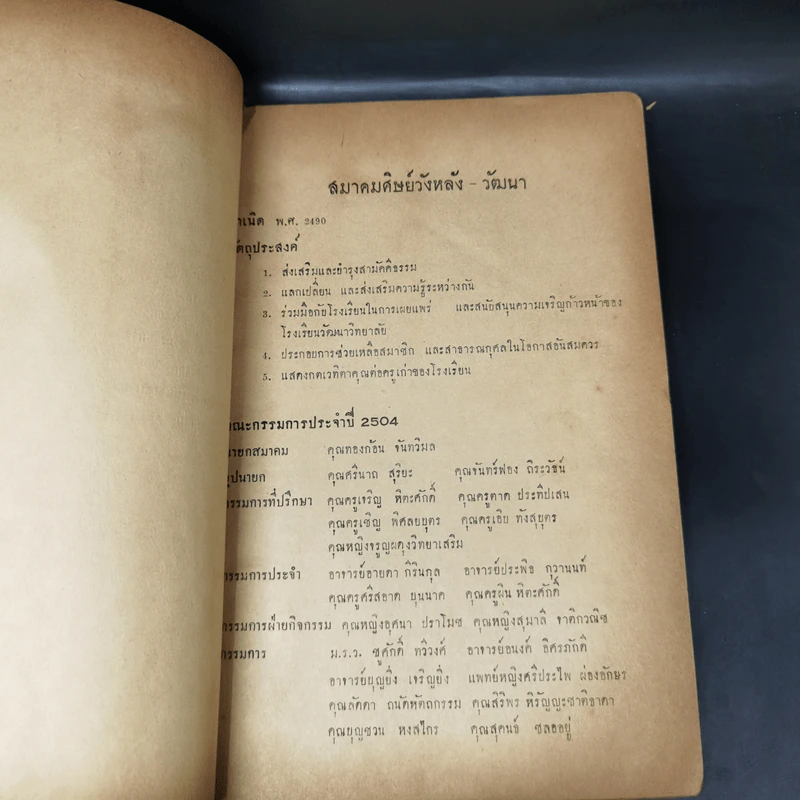 สมาคมศิษย์วังหลัง - วัฒนา
าเนิด พ.ศ. 2490
ัตถุประสงค์
1. ส่งเสริมและบำรุงสามัคคีธรรม
2. แลกเปลี่ยน และส่งเสริมความรู้ระหว่างกัน
3. ร่วมมือกับโรงเรียนในการเผยแพร่ และสนับสนุนความเจริญก้าวหน้าของ
โรงเรียนวัฒนาวิทยาลัย
4. ประกอบการช่วยเหลือสมาชิก และสาธารณกุศลในโอกาสอันสมควร
5. แสดงกตเวทิตาคุณต่อครูเก่าของโรงเรียน
ณะกรรมการประจำปี 2504
นายกสมาคม คุณทองก้อน จันทวิมล
อุปนายก คุณศรีนาถ สุริยะ คุณจันทร์ฟอง ถิระวัธน์
กรรมการที่ปรึกษา คุณครูเจริญ หิตะศักดิ์ คุณครูตาด ประทีปเสน
คุณครูเชิญ พิศลยบุตร คุณครูเอิบ ทังสุบุตร
คุณหญิงจรูญผดุงวิทยาเสริม
กรรมการประจำ อาจารย์อายดา กิรินกุล อาจารย์ประพีธ กุวานนท์
คุณครูศรีสอาด บุนนาค คุณครูผิน หิตะศักดิ์
กรรมการฝ่ายกิจกรรม คุณหญิงอุศนา ปราโมช คุณหญิงสุมาลี จาติกวณิช
กรรมการ ม.ร.ว. ชูศักดิ์ ทวิวงศ์ อาจารย์อนงค์ อิศรภักดี
อาจารย์บุญยิ่ง เจริญยิ่ง แพทย์หญิงศรีประไพ ผ่องอักษร
คุณลัดดา ถนัดหัตถกรรม คุณสิริพร หิรัญญะชาติธาดา
คุณบุญชวน หงสไกร คุณสุคนธ์ ชลออยู่